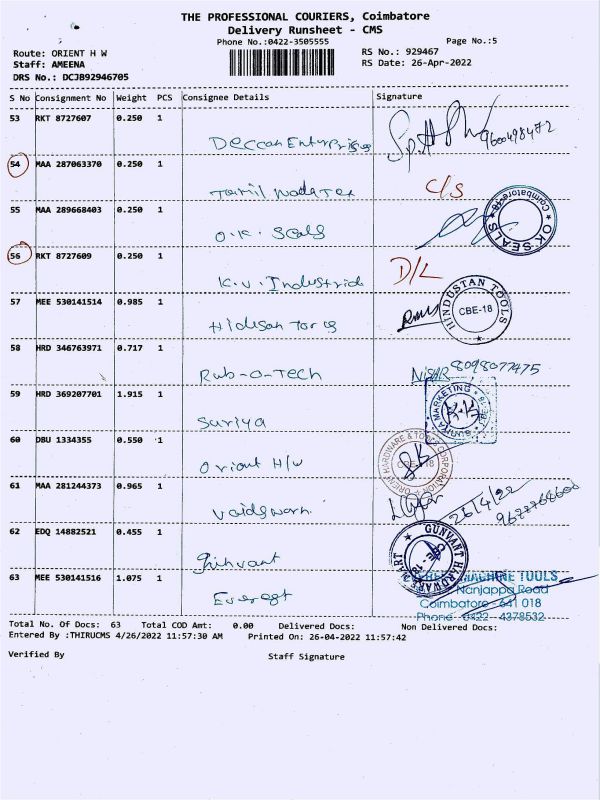 THE PROFESSIONAL COURIERS, Coimbatore
Delivery Runsheet - CMS
Phone No.:0422-3505555
Page No.:5
Route: ORIENT H W
RS No.: 929467
Staff: AMEENA
RS Date: 26-Apr-2022
DRS No.: DCJB92946705
S No Consignment No Weight PCS Consignee Details Signature
53 RKT 8727607 0.250 1
Deccan Enterprises
9600498472
54 MAA 287063370 0.250 1
C/S
Tamil Nadu Tex
55 MAA 289668403 0.250 1
O.K. Seals
OK SEALS Coimbatore-18
56 RKT 8727609 0.250 1
D/L
K.V. Industrid
57 MEE 530141514 0.985 1
HINDUSTAN TOOLS CBE-18
58 HRD 346763971 0.717 1
Rub-o-Tech
NISAR 8098077475
59 HRD 369207701 1.915 1
MARKETING
Suriya
60 DBU 1334355 0.550 1
ORIENT HARDWARE & TOOLS CORPORATION CBE-18
Orient H/W
61 MAA 281244373 0.965 1
26/4/22
62 EDQ 14882521 0.455 1
GUNVANT HARDWARE MART CBE-18
Gunvant
63 MEE 530141516 1.075 1
MACHINE TOOLS
Nanjappa Road
Everest
Coimbatore - 641 018
Phone : 0422 - 4378532
Total No. Of Docs: 63 Total COD Amt: 0.00 Delivered Docs: Non Delivered Docs:
Entered By :THIRUCMS 4/26/2022 11:57:30 AM Printed On: 26-04-2022 11:57:42
Verified By Staff Signature